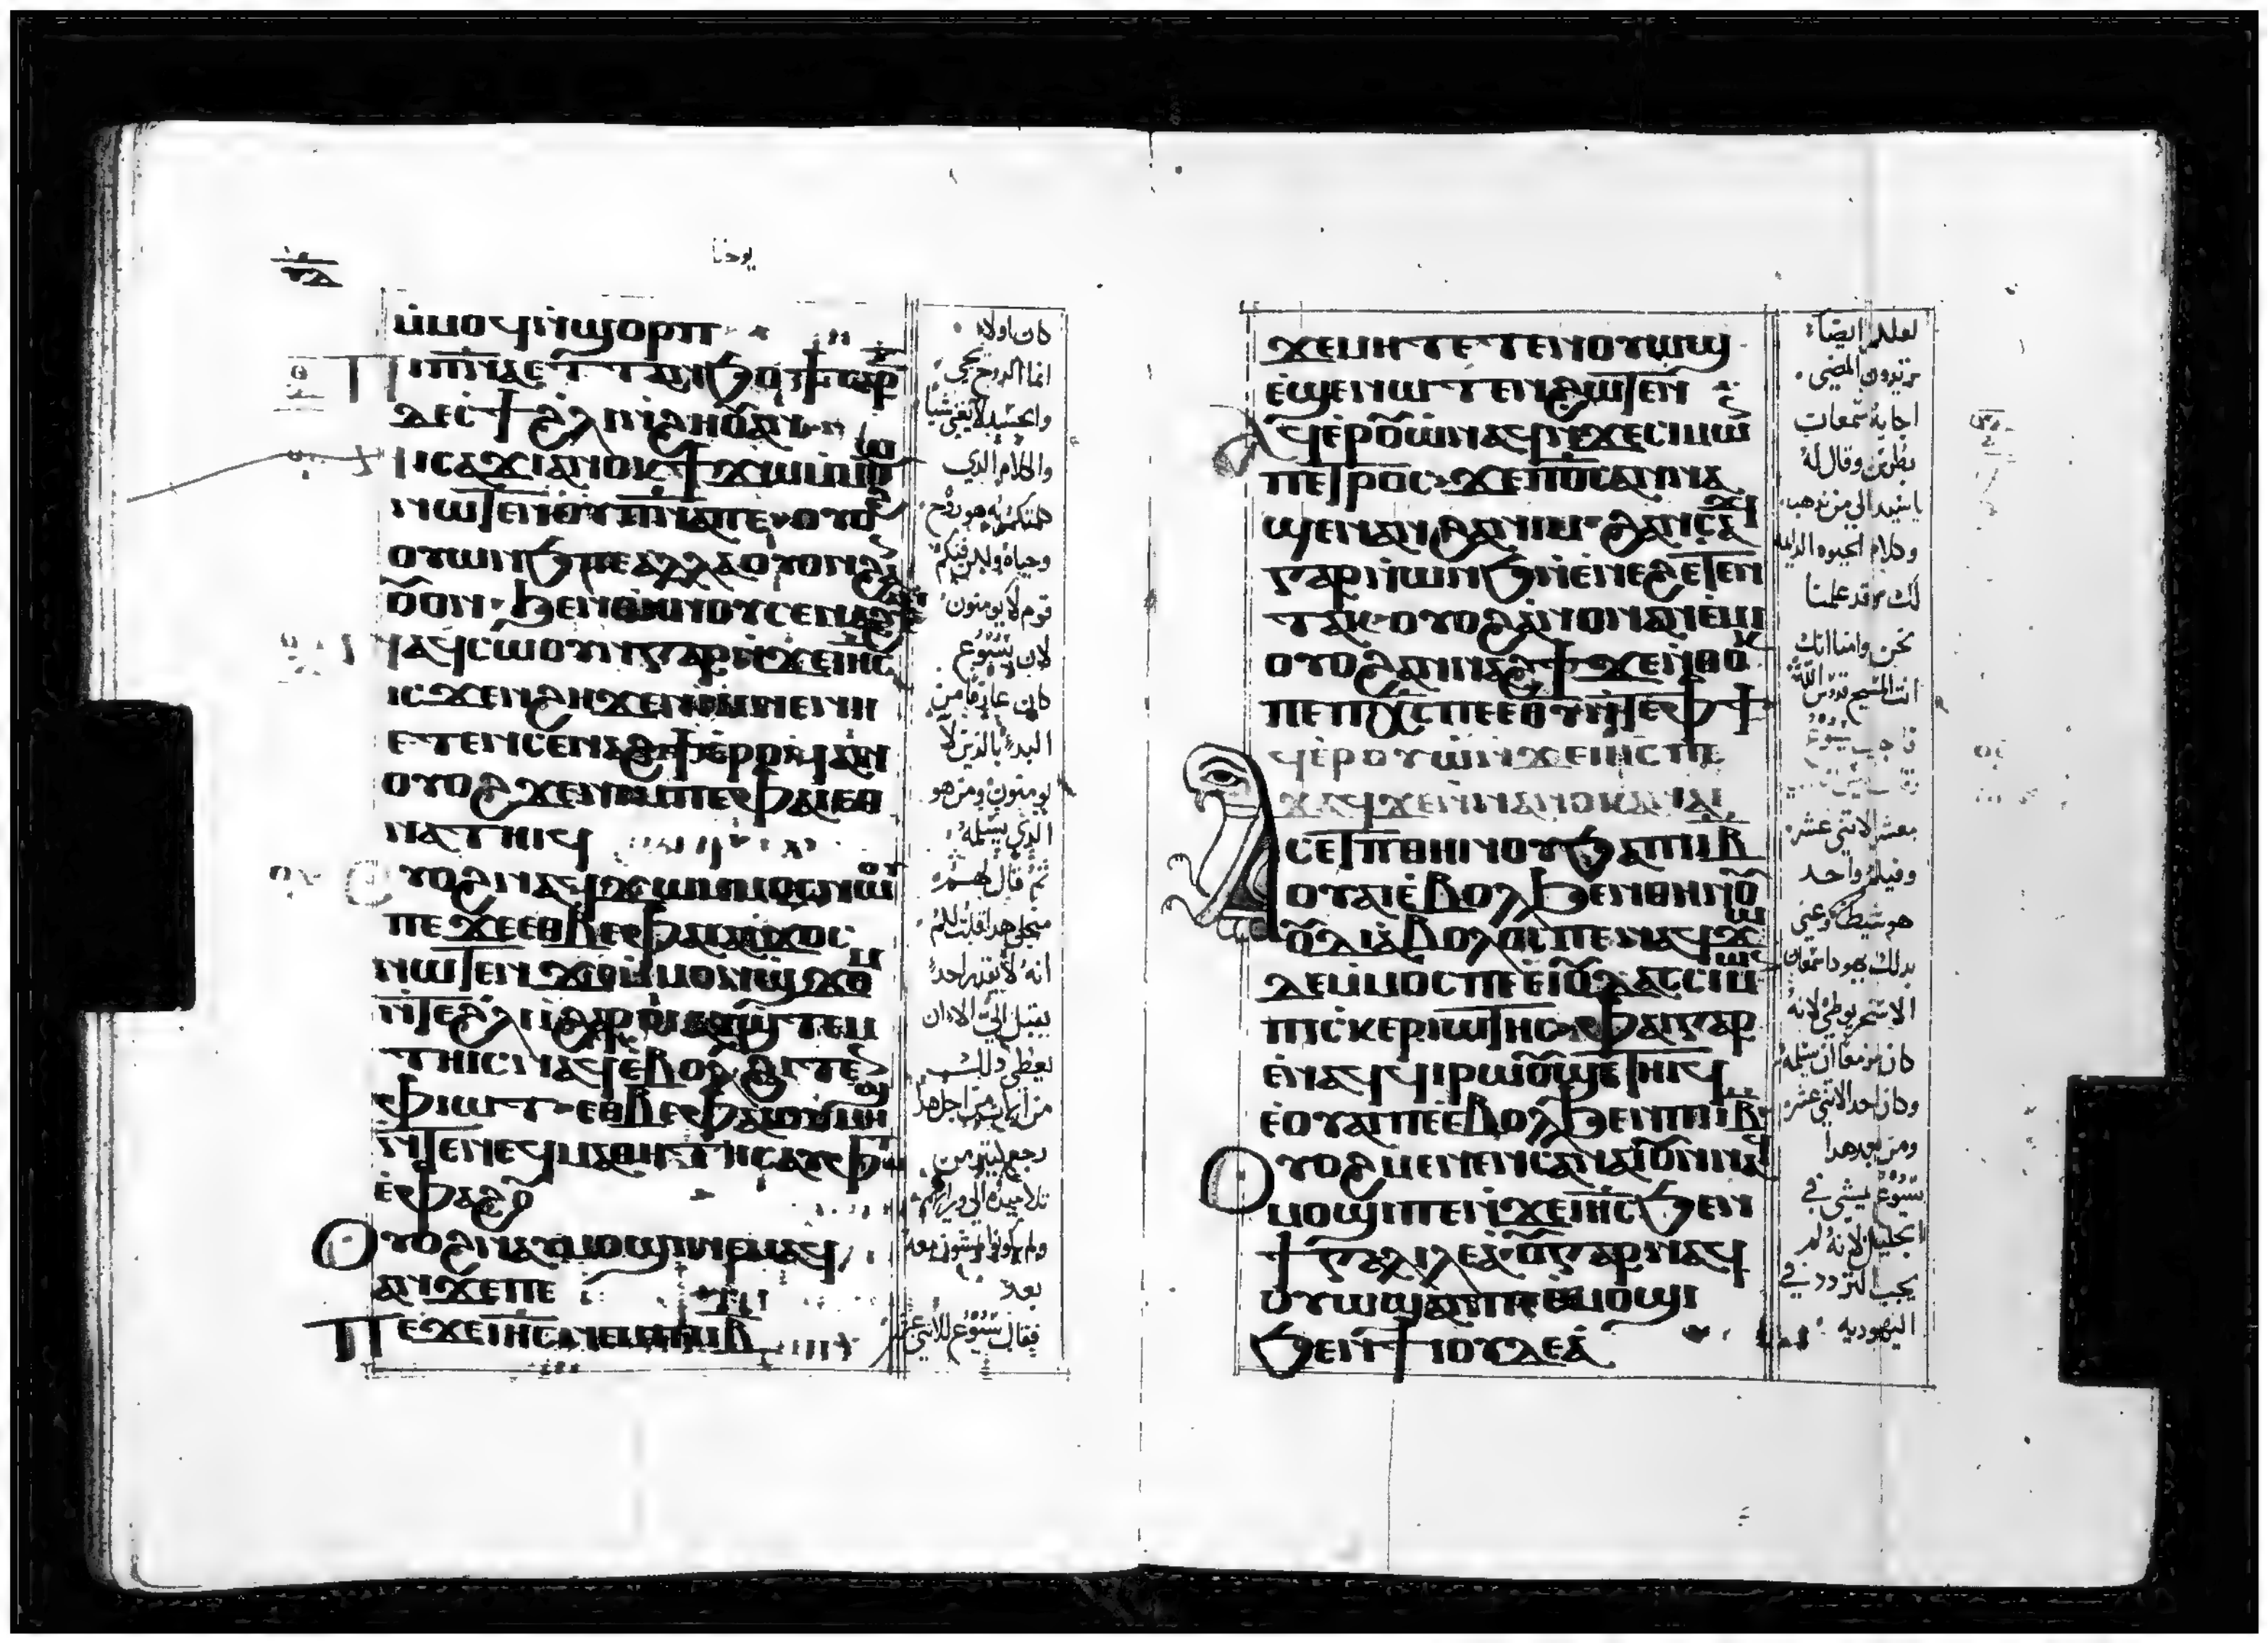 يوحنا
ⲙ̇ⲙⲟϥⲛ̇ϣⲟⲣⲡ
ⲡⲓⲡ̅ⲛ̅ⲁ̅ⲉⲧⲧⲁⲛϧⲟϯⲥⲁⲣⲝ
ⲇⲉⲥϯϩⲗⲓⲛ̇ϩⲏⲟⲩⲁⲛ
ⲛⲓⲥⲁϫⲓⲁⲛⲟⲕϯϫⲱⲙ̇ⲙⲱⲟⲩ
ⲛⲱⲧⲉⲛⲟⲩⲡ̅ⲛ̅ⲁ̅ⲡⲉⲟⲩⲟϩ
ⲟⲩⲱⲛϧⲡⲉⲁⲗⲗⲁⲟⲩⲟⲛϩⲁⲛ
ⲟⲩⲟⲛϧⲉⲛⲑⲏⲛⲟⲩⲥⲉⲛⲁϩϯⲁⲛ
ⲛⲁϥⲥⲱⲟⲩⲛⲅⲁⲣⲛ̇ϫⲉⲓⲏ̅ⲥ̅
ⲓⲥϫⲉⲛϩⲏϫⲉⲛⲓⲙⲛⲉⲛⲏ
ⲉⲧⲉⲛⲥⲉⲛⲁϩϯⲉ̇ⲣⲟϥⲁⲛ
ⲟⲩⲟϩϫⲉⲛⲓⲙⲡⲉⲫⲁⲓⲉⲑ
ⲛⲁⲧⲏⲓϥ
ⲟⲩⲟϩⲛⲁϥϫⲱⲙ̇ⲙⲟⲥⲛⲱⲟⲩ
ⲡⲉϫⲉⲉⲑⲃⲉⲫⲁⲓⲁⲓϫⲟⲥ
ⲛⲱⲧⲉⲛϫⲉⲙ̇ⲙⲟⲛϣϫⲟⲙ
ⲛ̇ⲧⲉϩⲗⲓⲓ̇ϩⲁⲣⲟⲓⲁϥϣⲧⲉⲙ
ⲧⲏⲓⲥⲛⲁϥⲉ̇ⲃⲟⲗϩⲓⲧⲉⲛ
ⲫⲓⲱⲧⲉⲑⲃⲉⲫⲁⲓⲟⲩⲙⲏϣ
ⲛ̇ⲧⲉⲛⲉϥⲙⲁⲑⲏⲧⲏⲥⲁⲩϩⲱⲗ
ⲉ̇ⲫⲁϩⲟⲩ
ⲟⲩⲟϩⲛⲁⲩⲙⲟϣⲓⲛⲉⲙⲁϥ
ⲁⲛϫⲉⲡⲉ
ⲡⲉϫⲉⲓⲏ̅ⲥ̅ⲙ̇ⲡⲓⲓ̅ⲃ̅
كان اولاء
انما الروح يحيي
والجسد لا يغني شيا
والكلام الذي
كلمتكم به هو روح
وحياة ولكن فيكم
قوم لا يومنون
لان يسوع
كان عارفا من
البدء بالذين لا
يومنون ومن هو
الذي يسلمه
ثم قال لهم
من اجل هذا قلت لكم
انه لا يقدر احد
يقبل الي الا ان
يعطى ذلك
من الاب من اجل هذا
رجع كثير من
تلاميذه الى ورايهم
ولم يكونوا يمشون معه
بعد
فقال يسوع للاثني عشر
ϫⲉⲙⲏⲧⲉⲧⲉⲛⲟⲩⲱϣ
ⲉ̇ϣⲉⲛⲱⲧⲉⲛϩⲱⲧⲉⲛ
ⲁϥⲉⲣⲟⲩⲱ̇ⲛⲁϥⲛ̇ϫⲉⲥⲓⲙⲱⲛ
ⲡⲉⲧⲣⲟⲥϫⲉⲡⲟ̅ⲥ̅ⲁⲛⲛⲁ
ϣⲉⲛⲁⲛϩⲁⲛⲓⲙϩⲁⲛⲥⲁϫⲓ
ⲅⲁⲣⲛ̇ⲱⲛϧⲛ̇ⲉⲛⲉϩⲉⲧⲉⲛ
ⲧⲁⲕⲟⲩⲟϩⲁ̇ⲛⲟⲛⲁⲛⲉ̇ⲙⲓ
ⲟⲩⲟϩⲁⲛⲛⲁϩϯϫⲉⲛ̇ⲑⲟⲕ
ⲡⲉⲡⲭ̅ⲥ̅ⲡⲉⲉⲑⲟⲩⲛ̇ⲧⲉⲫϯ
ⲁϥⲉⲣⲟⲩⲱ̇ⲛ̇ϫⲉⲓⲏ̅ⲥ̅ⲡⲉ
ϫⲁϥϫⲉⲙⲏⲁⲛⲟⲕⲁⲛⲁⲓ
ⲥⲉⲧⲡⲑⲏⲛⲟⲩϧⲁⲡⲓⲓ̅ⲃ̅
ⲟⲩⲁⲓⲉ̇ⲃⲟⲗϧⲉⲛⲑⲏⲛⲟⲩ
ⲟⲩⲇⲓⲁ̇ⲃⲟⲗⲟⲥⲡⲉⲛⲁϥϫⲱ
ⲇⲉⲙ̇ⲙⲟⲥⲡⲉⲉ̇ⲓⲟⲩⲇⲁⲥⲥⲓⲙⲱⲛ
ⲡⲓⲥⲕⲉⲣⲓⲱⲧⲏⲥⲫⲁⲓⲅⲁⲣ
ⲉ̇ⲛⲁϥⲛⲁⲣⲱⲟⲩϣⲉ̇ⲧⲏⲓϥ
ⲉ̇ⲟⲩⲁⲓⲡⲉⲉ̇ⲃⲟⲗϧⲉⲛⲡⲓⲓ̅ⲃ̅
ⲟⲩⲟϩⲙⲉⲛⲉⲛⲥⲁⲛⲁⲓⲟⲩⲛⲛⲁϥ
ⲙⲟϣⲓⲡⲉⲛ̇ϫⲉⲓⲏ̅ⲥ̅ϧⲉⲛ
ϯⲅⲁⲗⲓⲗⲉⲁ̇ⲟⲩⲅⲁⲣⲛⲁϥ
ⲟⲩⲱϣⲁⲛⲡⲉⲉ̇ⲙⲟϣⲓ
ϧⲉⲛϯⲓⲟⲩⲇⲉⲁ̇
لعلكم ايضا
تريدون المضي
اجابه سمعان
بطرس وقال له
يا سيد الى من نذهب
وكلام الحيوه الدايمه
لك وقد علمنا
نحن وامنا انك
انت المسيح قدوس الله
فاجاب يسوع
معشر الاثنى عشر
وفيكم واحد
هو شيطان وعني
بذلك يهودا سمعان
الاسخريوطي لانه
كان مزمعا ان يسلمه
وكان احد الاثنى عشر
ومن بعد هذا
يسوع يمشي في
الجليل لانه لم
يحب التردد في
اليهوديه